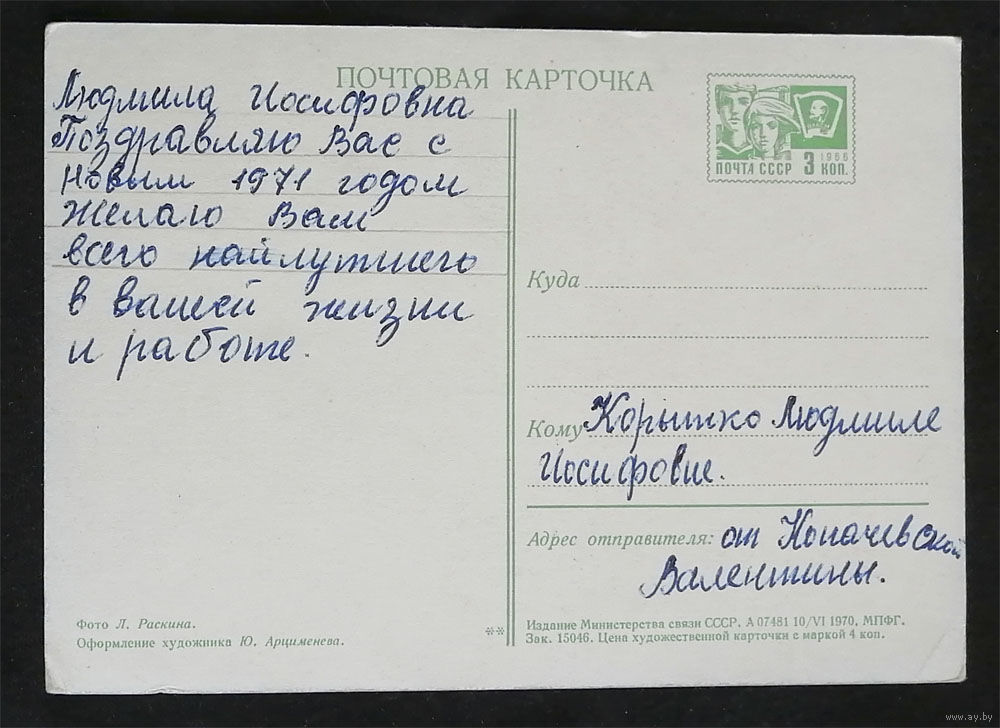 ПОЧТОВАЯ КАРТОЧКА
Людмила Иосифовна
Поздравляю Вас с
Новым 1971 годом
Желаю Вам
всего найлутшего
в вашей жизни
и работе.
1966
ПОЧТА СССР 3 КОП.
Куда
Кому Корытко Людмиле
Иосифовне.
Адрес отправителя: от Копачевской
Валентины.
Фото Л. Раскина.
Оформление художника Ю. Арцименева.
**
Издание Министерства связи СССР. А 07481 10/VI 1970. МПФГ.
Зак. 15046. Цена художественной карточки с маркой 4 коп.
www.ay.by